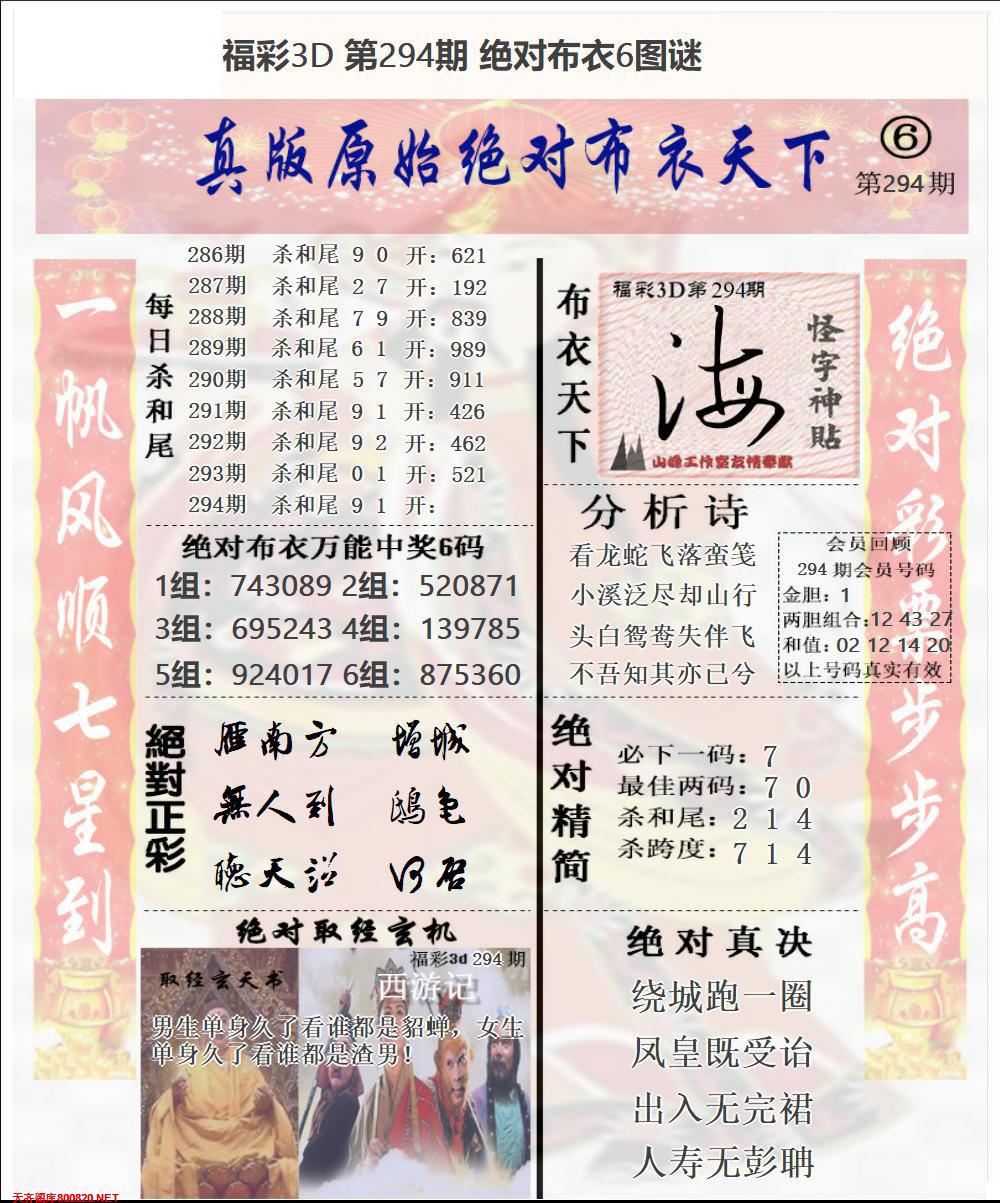 福彩3D 第294期 绝对布衣6图谜
真版原始绝对布衣天下
⑥
第294期
一帆风顺七星到
每日杀和尾
286期 杀和尾 9 0 开：621
287期 杀和尾 2 7 开：192
288期 杀和尾 7 9 开：839
289期 杀和尾 6 1 开：989
290期 杀和尾 5 7 开：911
291期 杀和尾 9 1 开：426
292期 杀和尾 9 2 开：462
293期 杀和尾 0 1 开：521
294期 杀和尾 9 1 开：
绝对布衣万能中奖6码
1组：743089 2组：520871
3组：695243 4组：139785
5组：924017 6组：875360
絕對正彩
雁南方 增城
無人到 鴟龟
聽天 何居
绝对取经玄机
福彩3d 294期
取经玄天书
西游记
男生单身久了看谁都是貂蝉，女生
单身久了看谁都是渣男！
布衣天下
福彩3D第294期
海
怪字神貼
山峰工作室友情奉献
分析诗
看龙蛇飞落蛮笺
小溪泛尽却山行
头白鸳鸯失伴飞
不吾知其亦已兮
会员回顾
294期会员号码
金胆：1
两胆组合:12 43 27
和值：02 12 14 20
以上号码真实有效
绝对精简
必下一码：7
最佳两码：7 0
杀和尾：2 1 4
杀跨度：7 1 4
绝对真决
绕城跑一圈
凤皇既受诒
出入无完裙
人寿无彭聃
绝对彩票步步高
天齐图库800820.NET